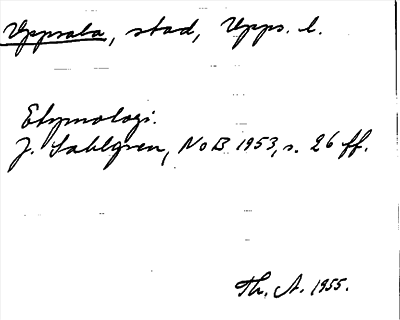 Uppsala, stad, Upps. l.
Etymologi.
J. Sahlgren, NoB 1953, s. 26 ff.
Th. A. 1955.